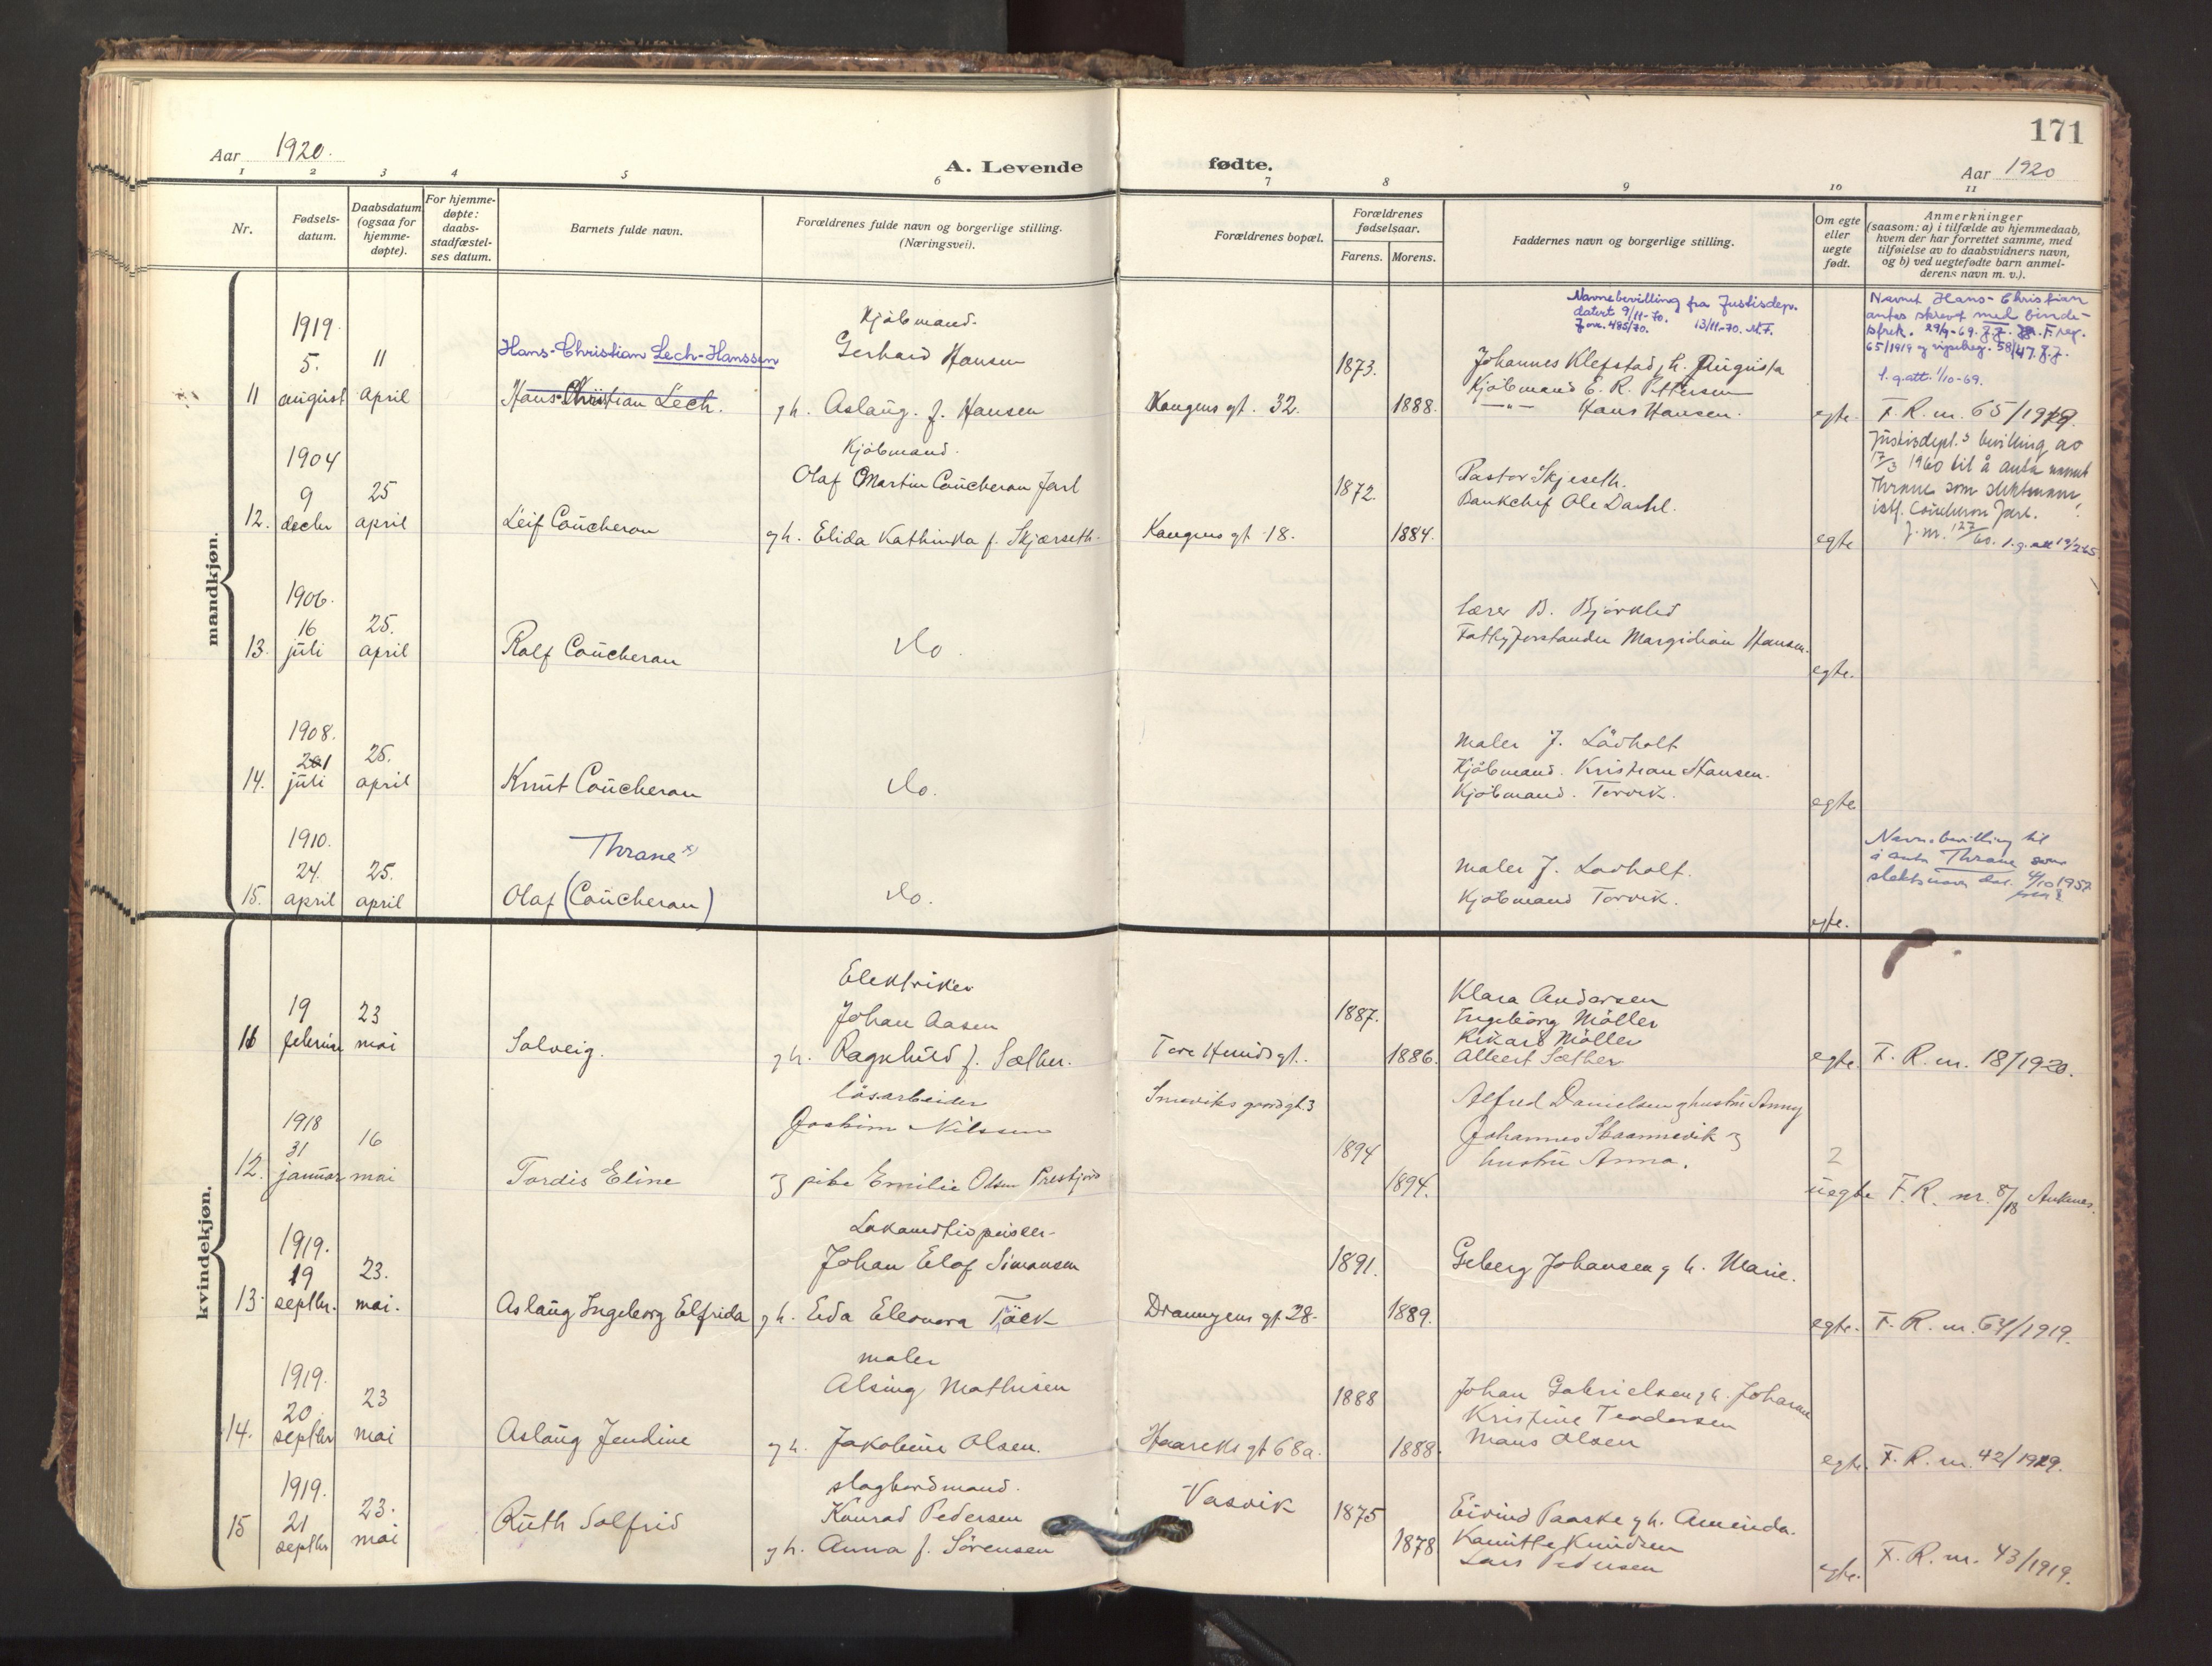 171
Aar 1920.
A. Levende
fødte.
Aar 1920
1 2 3 4 5 6 7 8 9 10 11
Nr.
Fødsels-
datum.
Daabsdatum
(ogsaa for
hjemme-
døpte).
For hjemme-
døpte:
daabs-
stadfæstel-
ses datum.
Barnets fulde navn.
Forældrenes fulde navn og borgerlige stilling.
(Næringsvei).
Forældrenes bopæl.
Forældrenes
fødselsaar.
Farens. Morens.
Faddernes navn og borgerlige stilling.
Om egte
eller
uegte
født.
Anmerkninger
(saasom: a) i tilfælde av hjemmedaab,
hvem der har forrettet samme, med
tilføielse av to daabsvidners navn,
og b) ved uegtefødte barn anmel-
derens navn m. v.).
mandkjøn.
11
1919.
5.
august
11
april
Hans-Christian Lech-Hanssen
Hans Christian Lech.
Kjøbmand.
Gerhard Hansen
g h. Aslaug. f. Hansen
Kongens gt. 32.
1873.
1888.
Navnebevilling fra Justisdep.
datert 9/11-70.
J.nr. 485/70. 13/11-70.
Johannes Klefstad, h. Augusta
Kjøbmand E. R. Pettersen
—"— Hans Hansen.
egte.
Navnet Hans-Christian
antas skrevet med binde-
strek. 29/9-69.
65/1919
l.g.att. 1/10-69.
F. R. nr. 65/1919.
12.
1904
9
decbr
25
april
Leif Coucheron
Kjøbmand.
Olaf Martin Coucheron Jarl
g h. Elida Kathinka f. Skjærseth.
Kongens gt 18.
1872.
1884.
Pastor Skjeseth.
Bankchef Ole Dahl.
egte
Justisdept.s bevilling av
17/3 1960 til å anta navnet
Thrane som slektsnavn,
istf. Coucheron Jarl.
J. nr. 127/60.
13.
1906.
16
juli
25.
april
Rolf Coucheron
do.
lærer B. Bjørklid
Fattigforstander Margidian Hansen.
egte.
14.
1908.
21
juli
25.
april
Knut Coucheron
do.
maler J. Lødholt
Kjøbmand. Kristian Hansen.
Kjøbmand. Torvik.
egte
15.
1910.
24.
april
25.
april
Thrane x)
Olaf (Coucheron)
do.
maler J. Lødholt.
Kjøbmand Torvik.
egte.
Navnebevilling til
å anta Thrane som
slektsnavn dat. 4/10 1957
kvindekjøn.
11
19
februar
23
mai
Solveig.
Elektriker
Johan Aasen
g h. Ragnhild f. Sæther.
Tore Hunds gt.
1887.
1886.
Klara Andersen
Ingeborg Møller
Rikard Møller
Albert Sæther
egte.
F. R. nr. 18/1920.
12.
1918
31
januar
16
mai
Tordis Eline
løsarbeider
Joakim Nilssen
pike Emilie Olsen Prestjord
1894
1894.
Alfred Danielsen g hustru Anny
Johannes Skaannevik
hustru Anna.
2
uegte
F. R. nr. 8/18 Ankenes.
13.
1919.
19
septbr.
23.
mai.
Aslaug Ingeborg Elfrida
Lokomotivpusser
Johan Elof Simonsen
g h. Eda Eleonora Töck
Dronningens gt 28.
1891.
1889.
Geberg Johansen g h. Marie.
egte.
F. R. nr. 64/1919.
14.
1919.
20.
septbr
23
mai
Aslaug Jendine
maler
Alsing Mathisen
g h. Jakobine Olsen.
Haareks gt 68a.
1888
1888.
Johan Gabrielsen g h. Johanne
Kristine Teodorsen
Mans Olsen
egte.
F. R. nr. 42/1919.
15
1919.
21
septbr
23.
mai
Ruth Solfrid
slagbordmand.
Konrad Pedersen
g h. Anna f. Sørensen
Vasvik
1875
1878
Eivind Paaske g h. Amanda.
Kamilla Knudsen
Lars Pedersen
egte.
F. R. nr. 43/1919.